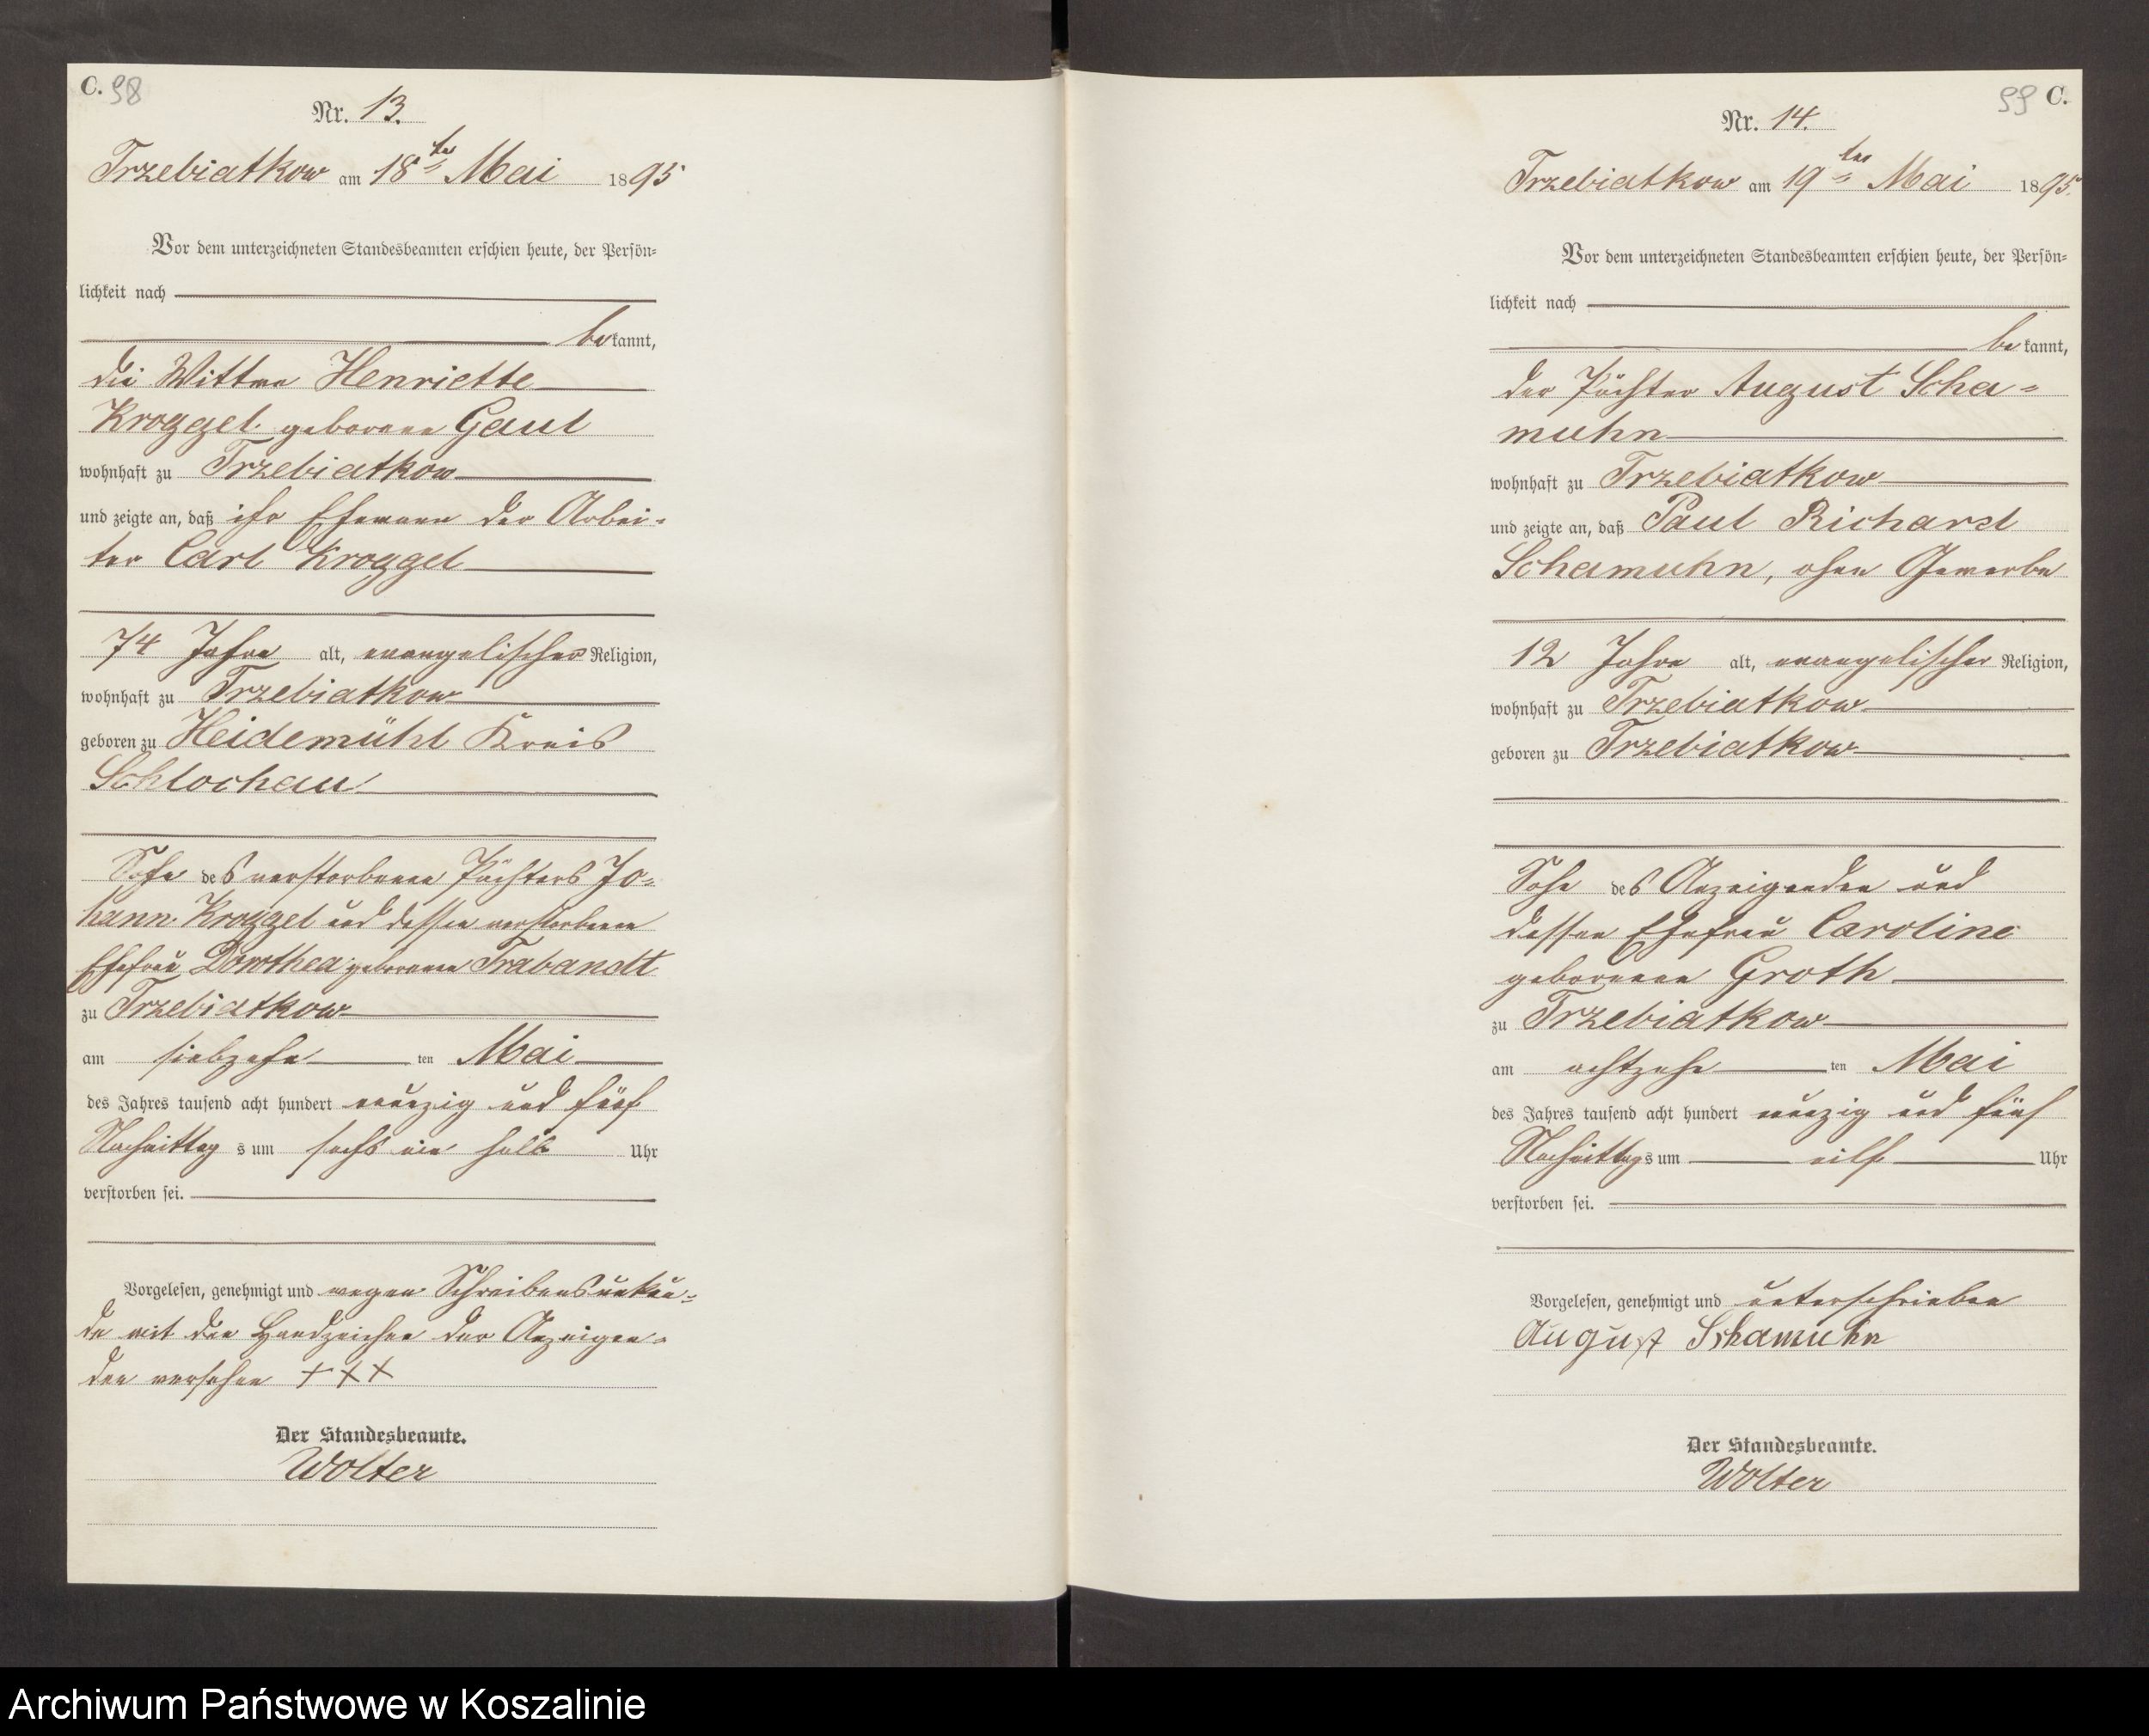 C. 98
Nr. 13.
Trzebiatkow am 18ten Mai 1895
Vor dem unterzeichneten Standesbeamten erschien heute, der Persön-
lichkeit nach
bekannt,
die Wittwe Henriette
Kroggel geborene Gaul
wohnhaft zu Trzebiatkow
und zeigte an, daß ihr Ehemann der Arbei-
ter Carl Kroggel
74 Jahre alt, evangelischer Religion,
wohnhaft zu Trzebiatkow
geboren zu Heidemühl Kreis
Schlochau
Sohn des verstorbenen Pächters Jo-
hann Kroggel und dessen verstorbene
Ehefrau Dorothea geborenen Trabandt
zu Trzebiatkow
am siebzehn ten Mai
des Jahres tausend acht hundert neunzig und fünf
Nachmittag s um sechs ein halb Uhr
verstorben sei.
Vorgelesen, genehmigt und wegen Schreibensunkun-
de mit den Handzeichen der Anzeigen-
den versehen + + +
Der Standesbeamte.
Wolter
99 C.
Nr. 14.
Trzebiatkow am 19ten Mai 1895.
Vor dem unterzeichneten Standesbeamten erschien heute, der Persön-
lichkeit nach
bekannt,
der Pächter August Scha-
muhn
wohnhaft zu Trzebiatkow
und zeigte an, daß Paul Richard
Schamuhn, ohne Gewerbe
12 Jahre alt, evangelischer Religion,
wohnhaft zu Trzebiatkow
geboren zu Trzebiatkow
Sohn des Anzeigenden und
dessen Ehefrau Caroline
geborenen Groth
zu Trzebiatkow
am achtzehn ten Mai
des Jahres tausend acht hundert neunzig und fünf
Nachmittags um eilf Uhr
verstorben sei.
Vorgelesen, genehmigt und unterschrieben
August Schamuhn
Der Standesbeamte.
Wolter
Archiwum Państwowe w Koszalinie